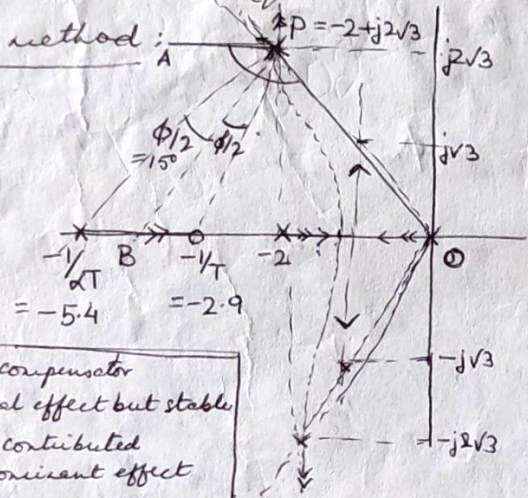 method :
P = -2+j2√3
A
j2√3
ϕ/2
ϕ/2
=15°
j√3
-1/αT
B
-1/T
-2
= -5.4
= -2.9
-j√3
compensator
al effect but stable
contributed
ominant effect
-j2√3